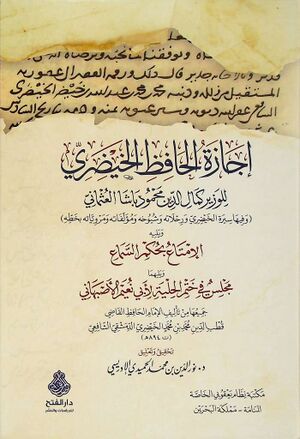 إجازة الحافظ الخيضري
للوزير كمال الدين محمود باشا العثماني
(وفيها سيرة الخيضري ورحلاته وشيوخه ومؤلفاته ومروياته بخطه)
ويليه
الإمتاع بحكم السماع
ويليهما
مجلس في ختم الحلية لأبي نعيم الأصبهاني
جميعها من تأليف الإمام الحافظ القاضي
قطب الدين محمد بن محمد الخيضري الدمشقي الشافعي
(ت ٨٩٤هـ)
تحقيق وتعليق
د. نور الدين بن محمد الحميدي الإدريسي
مكتبة نظام يعقوبي الخاصة
المنامة - مملكة البحرين
دار الفتح
للدراسات والنشر